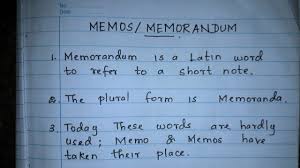 No
Date
MEMOS/ MEMORANDUM
1. Memorandum is a Latin word
to refer to a short note.
2. The plural form is Memoranda.
3. Today These words are hardly
used; Memo & Memos have
taken their place.